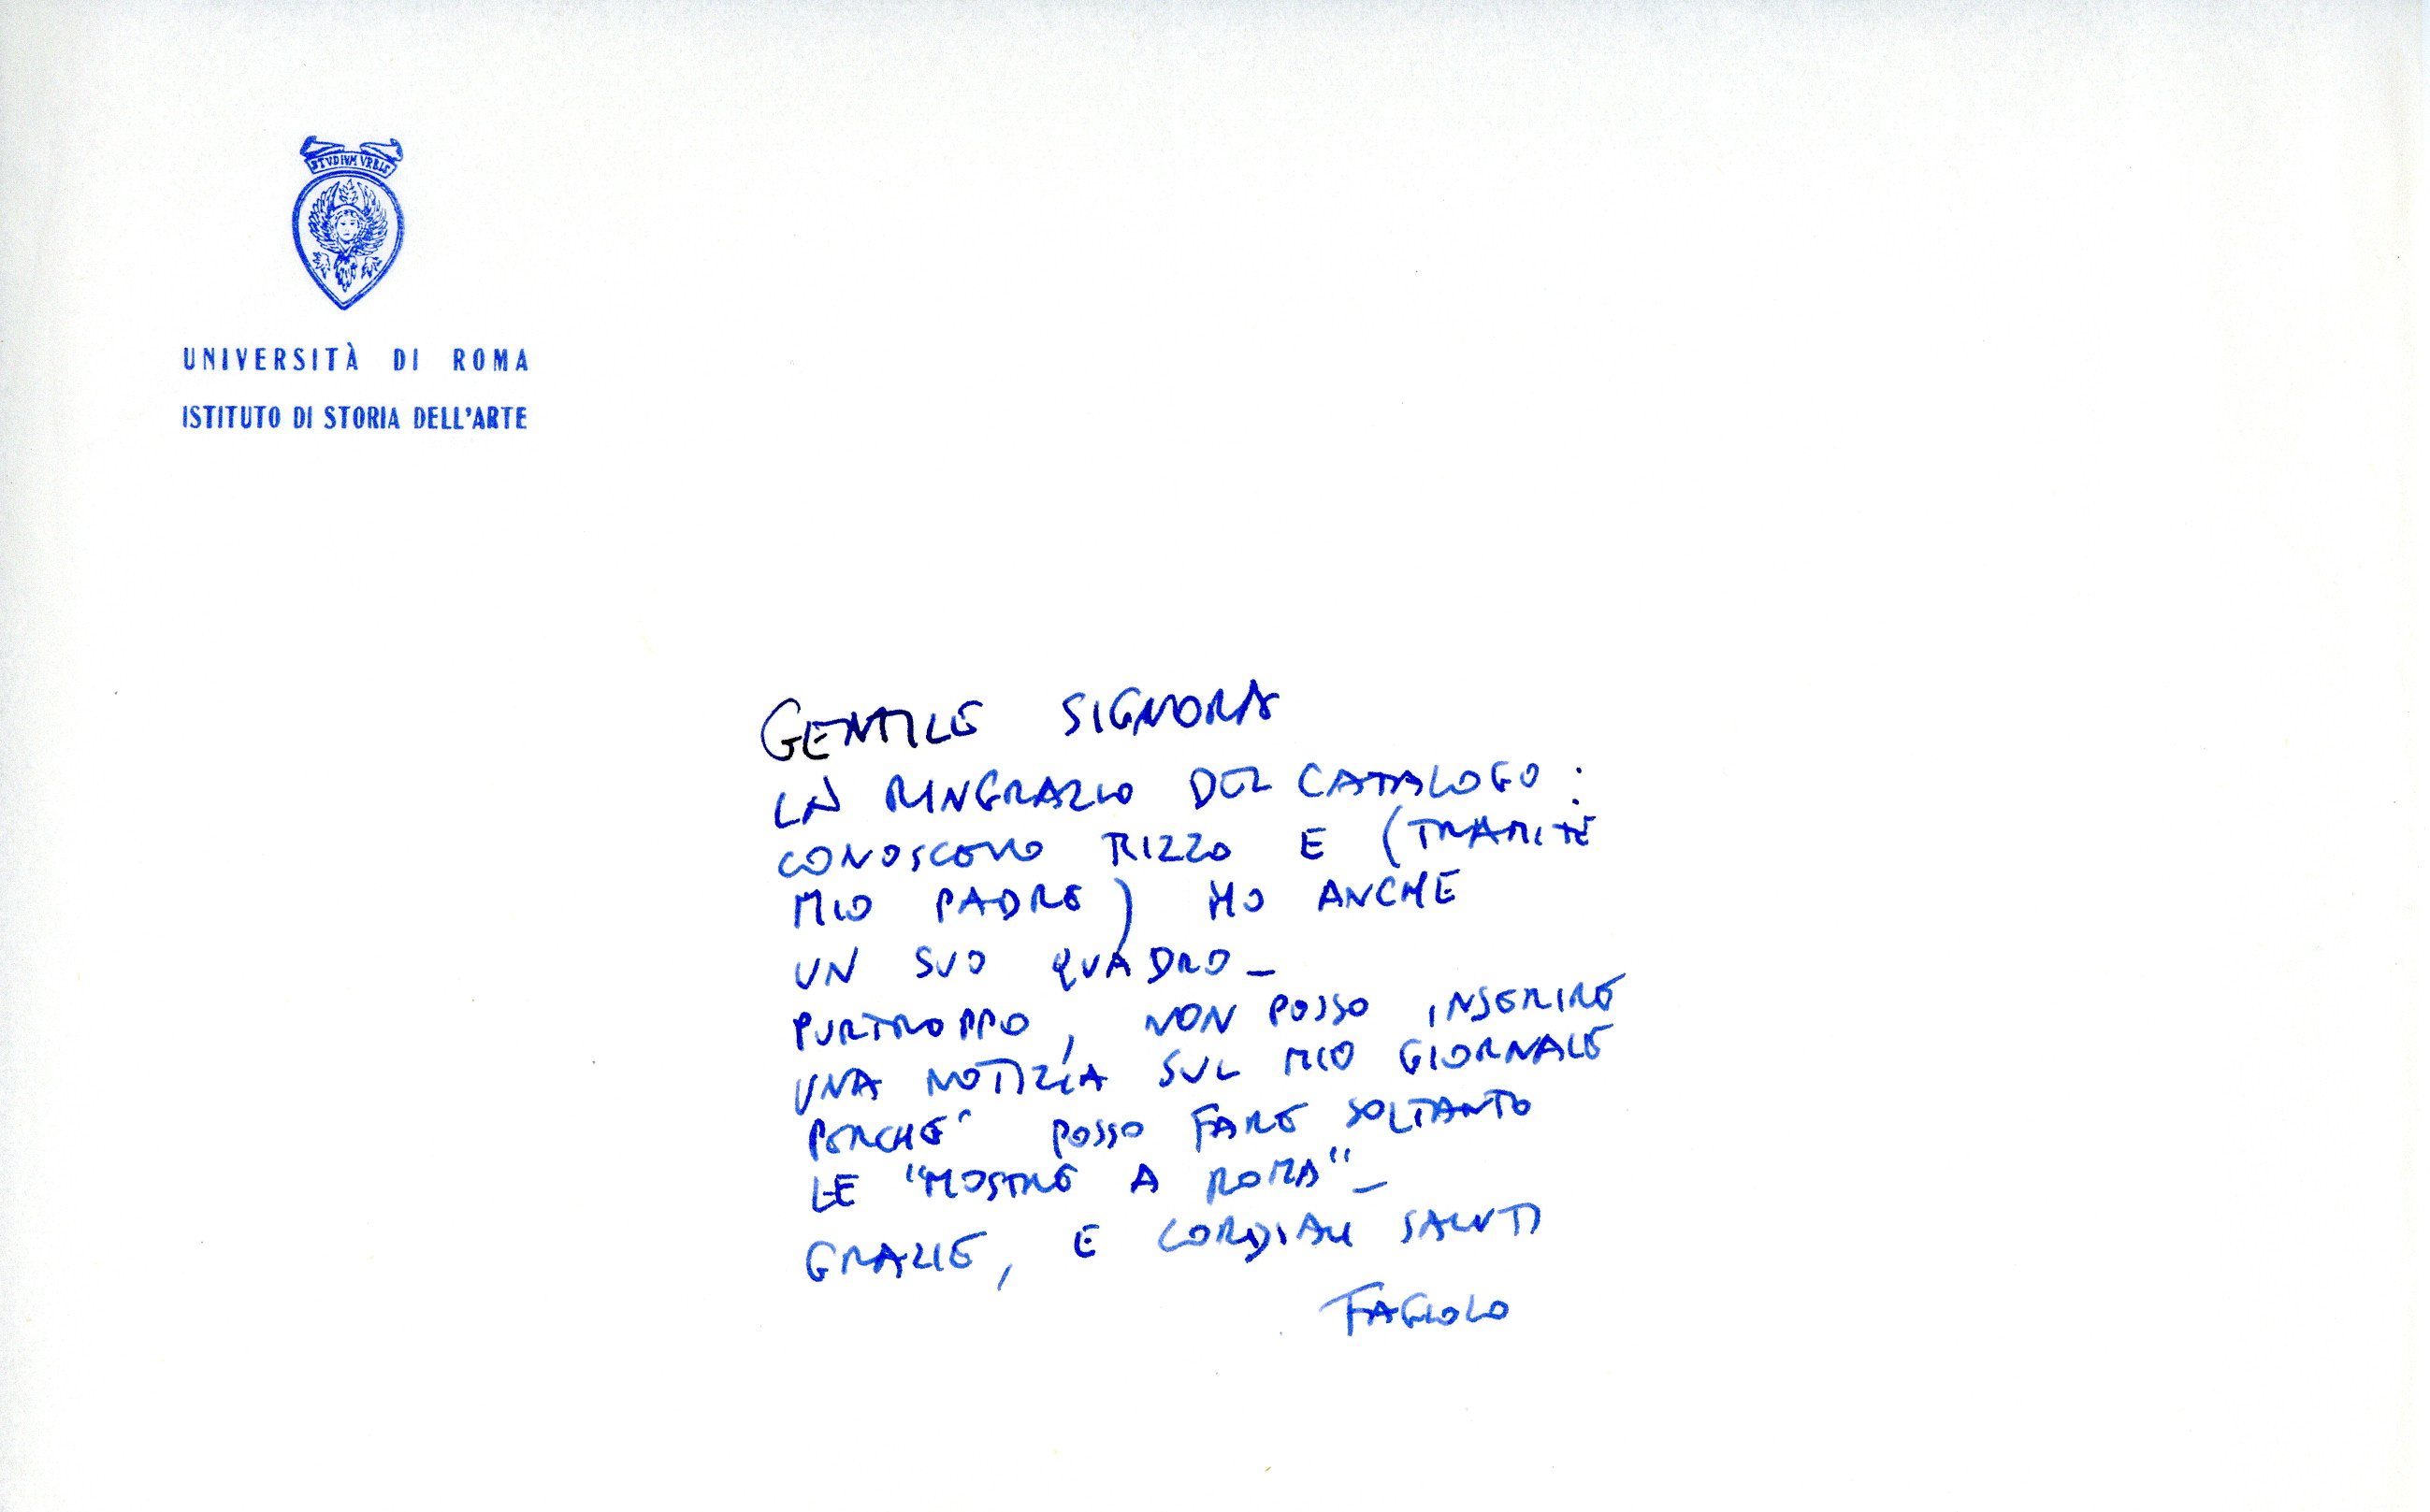 STVDIVM VRBIS
UNIVERSITÀ DI ROMA
ISTITUTO DI STORIA DELL'ARTE
GENTILE SIGNORA
LA RINGRAZIO DEL CATALOGO :
CONOSCEVO RIZZO E (TRAMITE
MIO PADRE) HO ANCHE
UN SUO QUADRO _
PURTROPPO, NON POSSO INSERIRE
UNA NOTIZIA SUL MIO GIORNALE
PERCHE' POSSO FARE SOLTANTO
LE "MOSTRE A ROMA" _
GRAZIE, E CORDIALI SALUTI
FAGIOLO